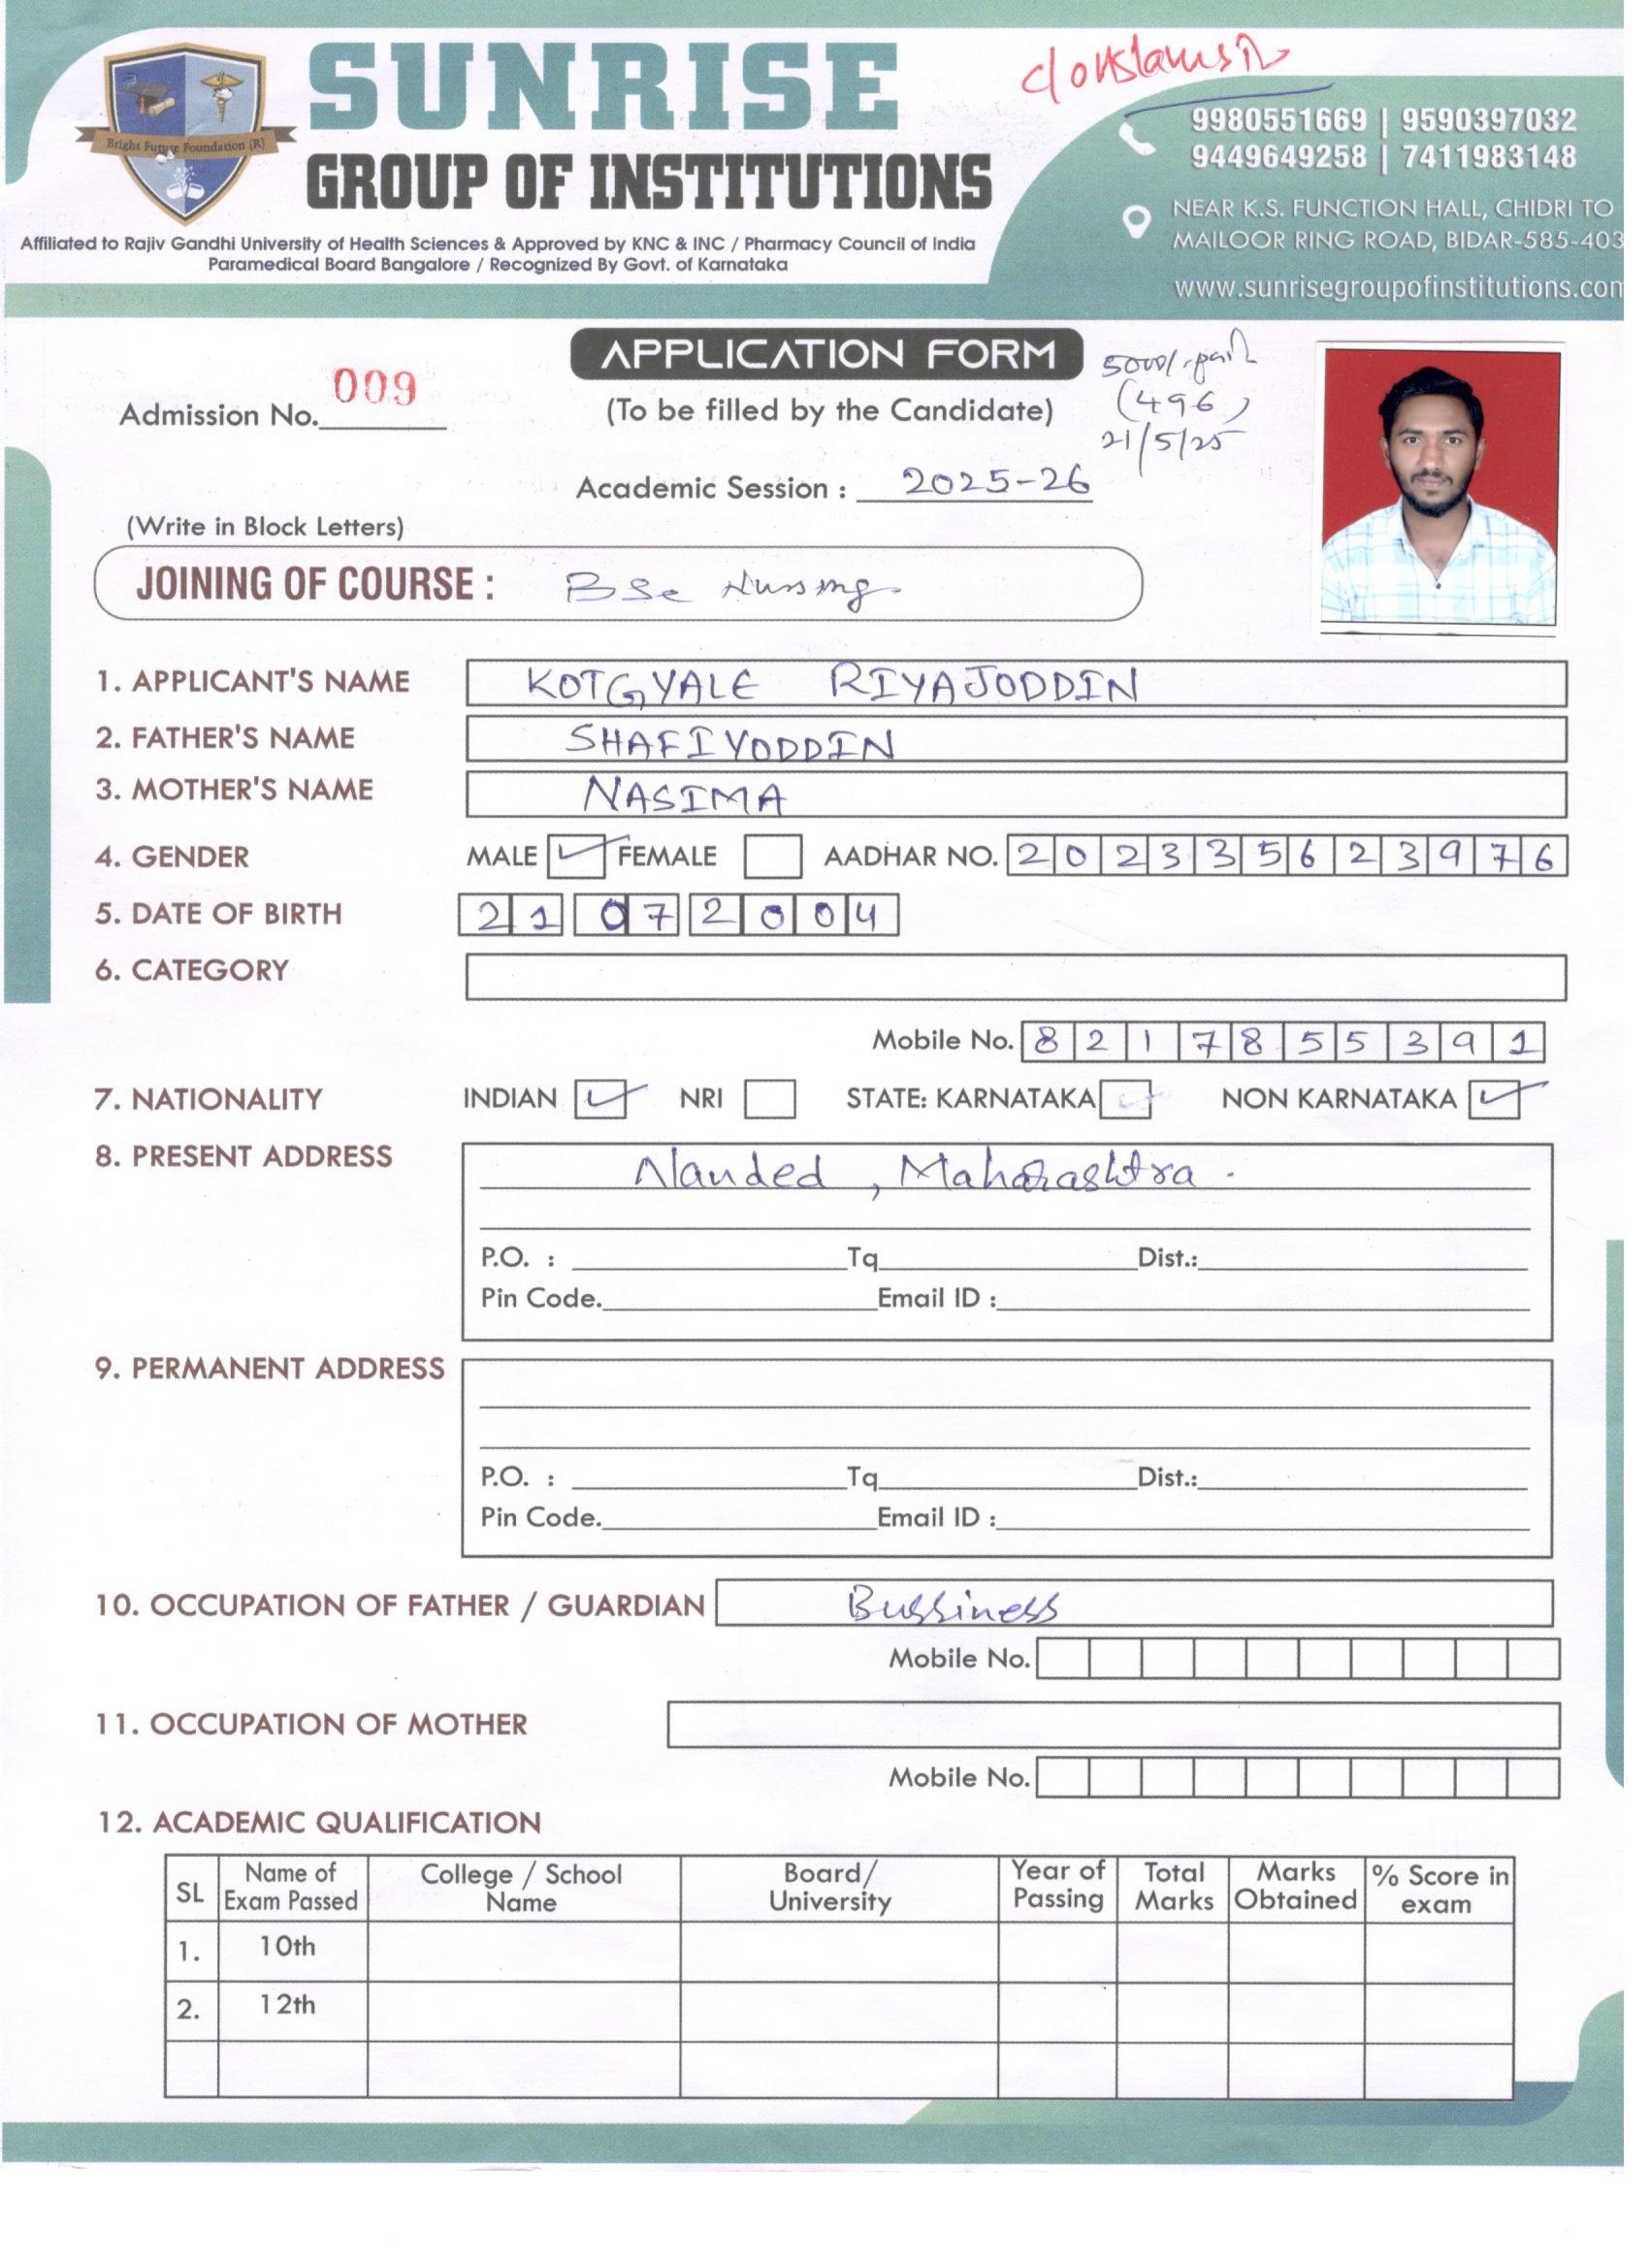 SUNRISE
GROUP OF INSTITUTIONS
Bright Future Foundation (R)
Affiliated to Rajiv Gandhi University of Health Sciences & Approved by KNC & INC / Pharmacy Council of India
Paramedical Board Bangalore / Recognized By Govt. of Karnataka
9980551669 | 9590397032
9449649258 | 7411983148
NEAR K.S. FUNCTION HALL, CHIDRI TO
MAILOOR RING ROAD, BIDAR-585-403
www.sunrisegroupofinstitutions.com
APPLICATION FORM
5000/- paid
Admission No. 009
(To be filled by the Candidate)
(496)
21/5/25
Academic Session : 2025-26
(Write in Block Letters)
JOINING OF COURSE : BSc Nursing
1. APPLICANT'S NAME KOTGYALE RIYAJODDIN
2. FATHER'S NAME SHAFIYODDIN
3. MOTHER'S NAME NASIMA
4. GENDER MALE FEMALE AADHAR NO. 202335623976
5. DATE OF BIRTH 21 07 2004
6. CATEGORY
Mobile No. 8217855391
7. NATIONALITY INDIAN NRI STATE: KARNATAKA NON KARNATAKA
8. PRESENT ADDRESS Nanded, Maharashtra.
P.O. : Tq Dist.:
Pin Code. Email ID :
9. PERMANENT ADDRESS
P.O. : Tq Dist.:
Pin Code. Email ID :
10. OCCUPATION OF FATHER / GUARDIAN Bussiness
Mobile No.
11. OCCUPATION OF MOTHER
Mobile No.
12. ACADEMIC QUALIFICATION
SL Name of Exam Passed College / School Name Board/ University Year of Passing Total Marks Marks Obtained % Score in exam
1. 10th
2. 12th